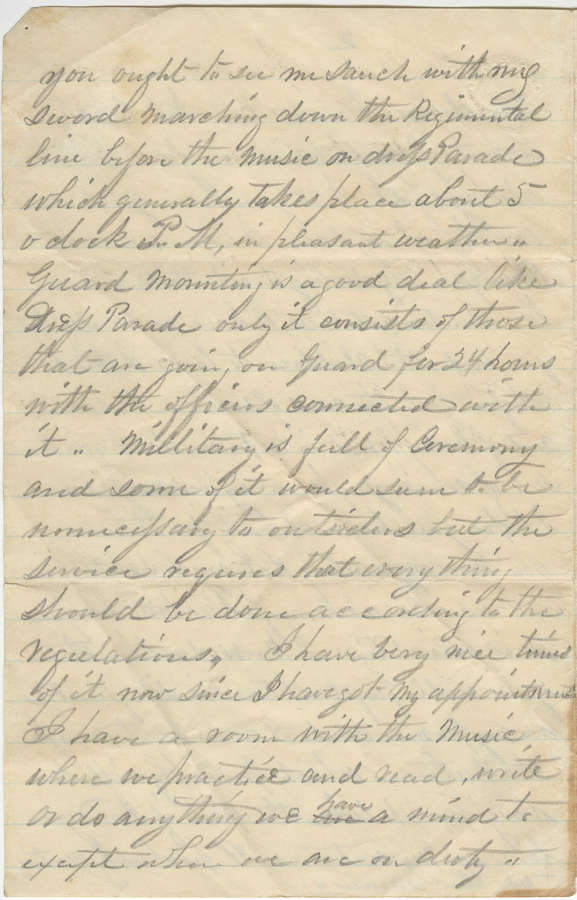 you ought to see me sauch with my
sword marching down the Regimental
line before the music on dress Parade
which generally takes place about 5
o clock P. M, in pleasant weather..
Guard Mounting is a good deal like
Dress Parade only it consists of those
that are going on Guard for 24 hours
with the officers connected with
it .. Millitary is full of Ceremony
and some of it would seem to be
unnecessary to outsiders but the
service requires that everything
should be done according to the
regulations,, I have very nice times
of it now since I have got my appointment
I have a room with the Music
where we practice and read, write
or do anything we have a mind to
except when we are on duty ..